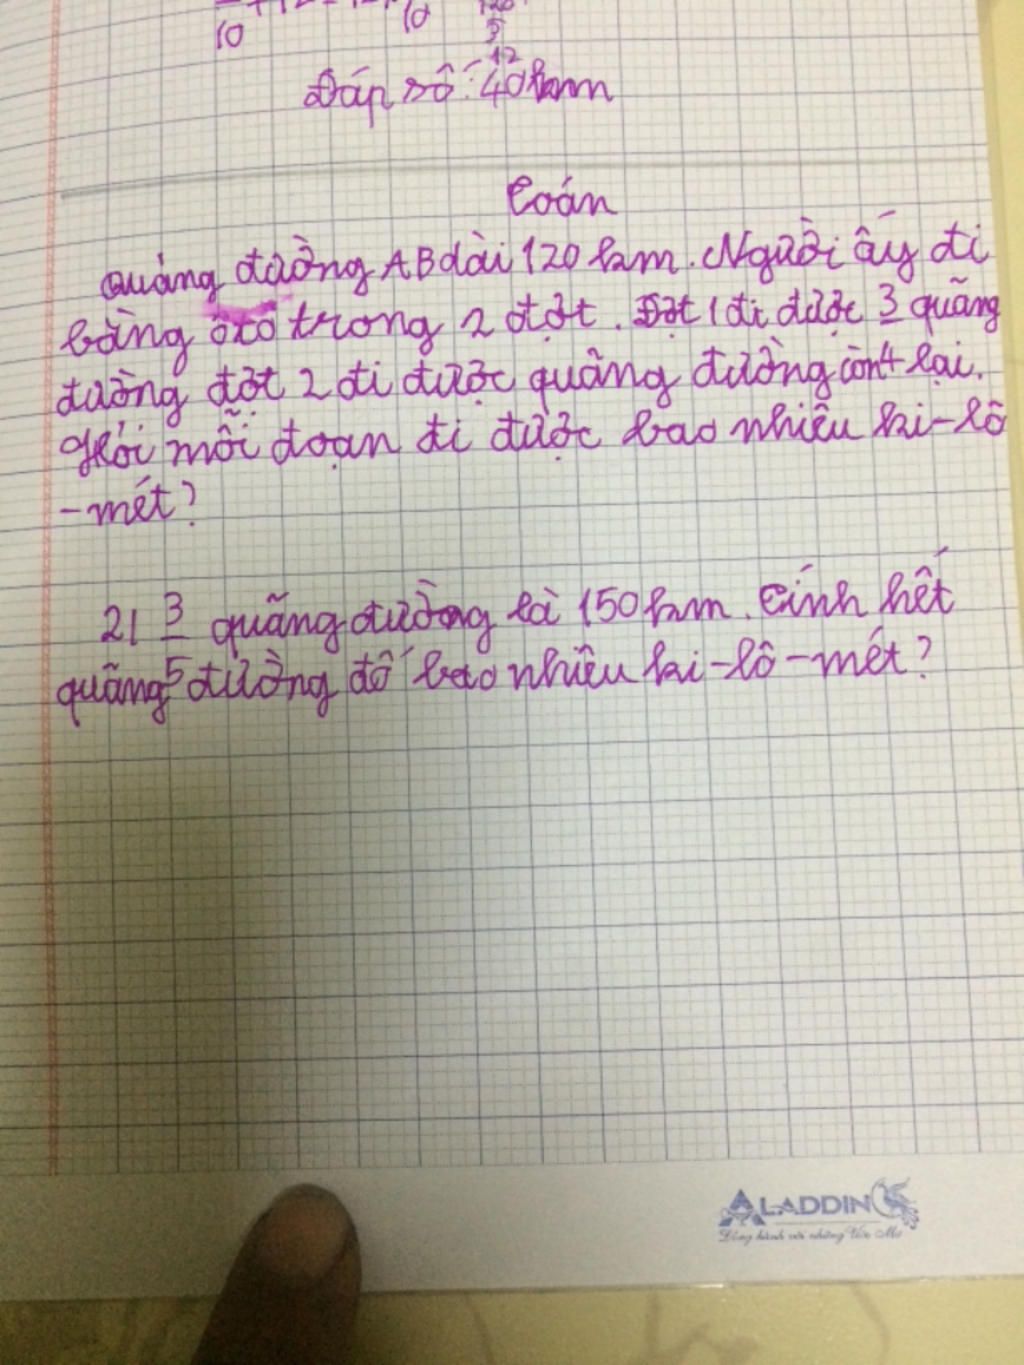 10
10
Đáp số: 40km
Toán
Quảng đường AB dài 120 km. Người ấy đi
bằng ôtô trong 2 đợt. Đợt 1 đi được 3 quãng
đường đợt 2 đi được quãng đường còn 4 lại.
Hỏi mỗi đoạn đi được bao nhiêu ki-lô
-mét?
2) 3 quãng đường là 150 km. Tính hết
quãng 5 đường đố bao nhiêu ki-lô-mét?
ALADDIN
Đồng hành với những Ước Mơ